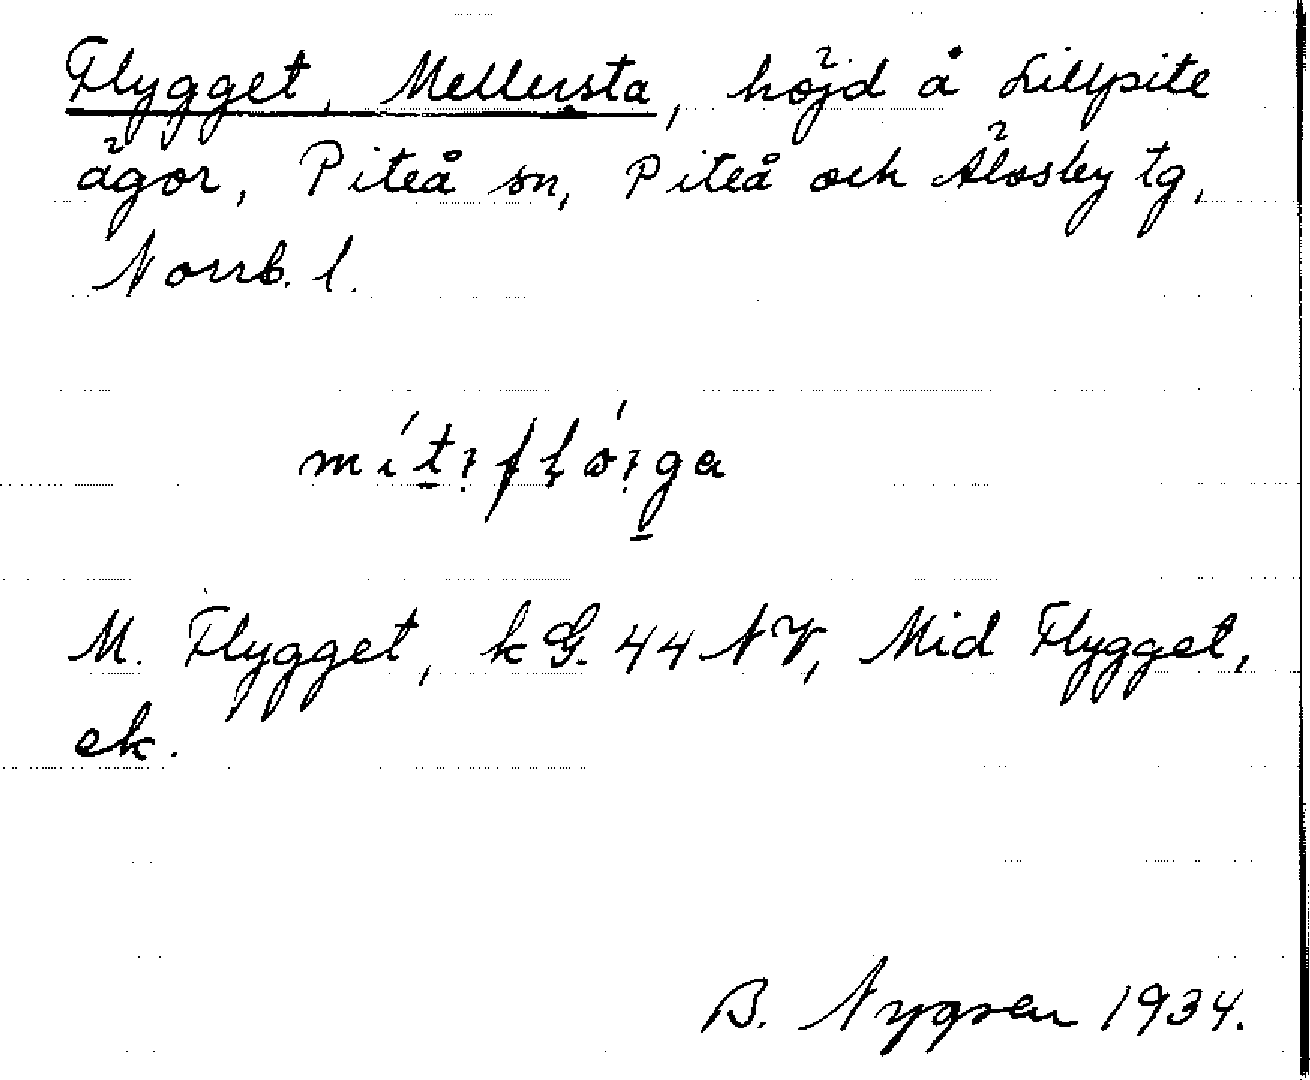 Flygget, Mellersta, höjd å Lillpite
ägor, Piteå sn, Piteå och Älvsby tg,
Norrb. l.
M. Flygget, kG. 44 NV, Mid Flygget,
ek.
B. Nygren 1934.